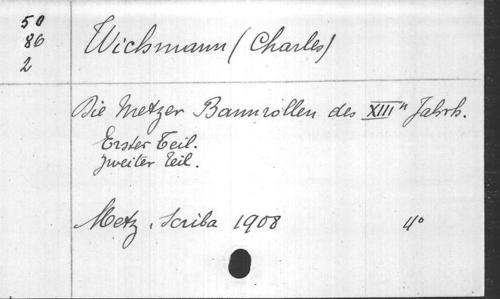 50
86
2
Wichmann (Charles)
Die Metzer Bannrollen des XIII" Jahrh.
Erster Teil.
Zweiter Teil.
Metz, Scriba 1908 4°